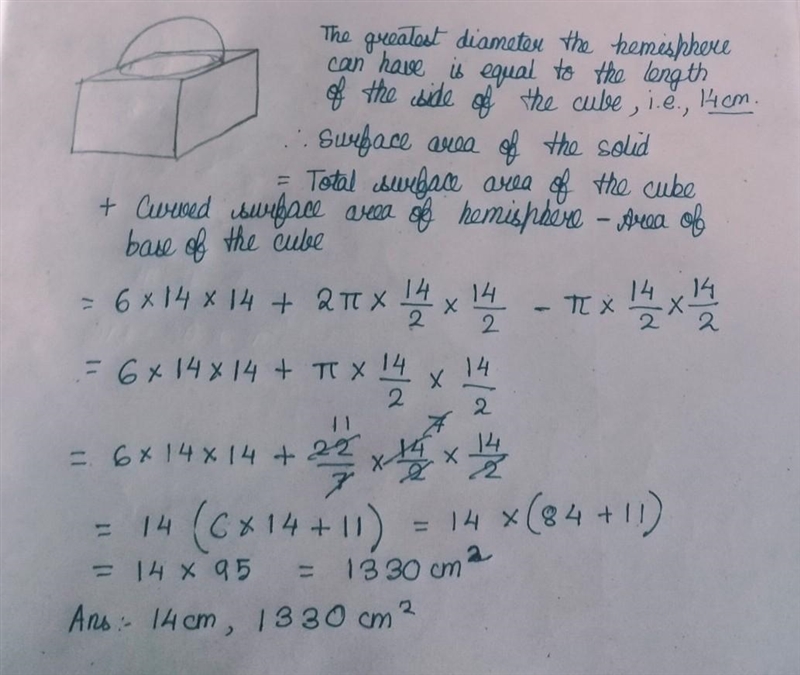 The greatest diameter the hemisphere
can have is equal to the length
of the side of the cube, i.e., 14cm.
∴ Surface area of the solid
= Total surface area of the cube
+ Curved surface area of hemisphere - Area of
base of the cube
= 6 × 14 × 14 + 2π × 14/2 × 14/2 - π × 14/2 × 14/2
= 6 × 14 × 14 + π × 14/2 × 14/2
11 7
= 6 × 14 × 14 + 22/7 × 14/2 × 14/2
= 14 (6 × 14 + 11) = 14 × (84 + 11)
= 14 × 95 = 1330 cm²
Ans :- 14cm, 1330 cm²